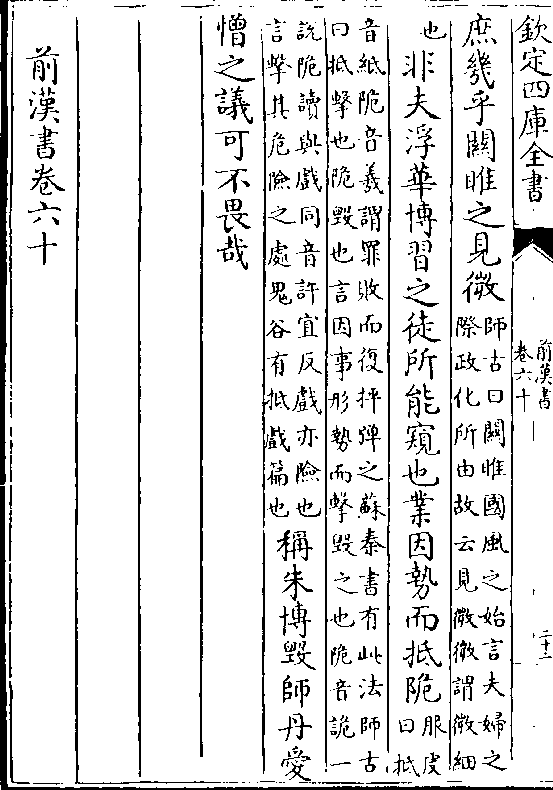 欽定四庫全書
前漢書
卷六十
二十二
庶幾乎關雎之見微師古曰關雎國風之始言夫婦之
際政化所由故云見微微謂微細
也非夫浮華博習之徒所能窺也業因勢而抵陒服皮
曰抵
音紙陒音羲謂罪敗而復抨彈之蘇秦書有此法師古
曰抵擊也陒毀也言因事形勢而擊毀之也陒音詭一
說陒讀與戲同音許宜反戲亦險也
言擊其危險之處鬼谷有抵戲篇也稱朱博毀師丹愛
憎之議可不畏哉
前漢書卷六十